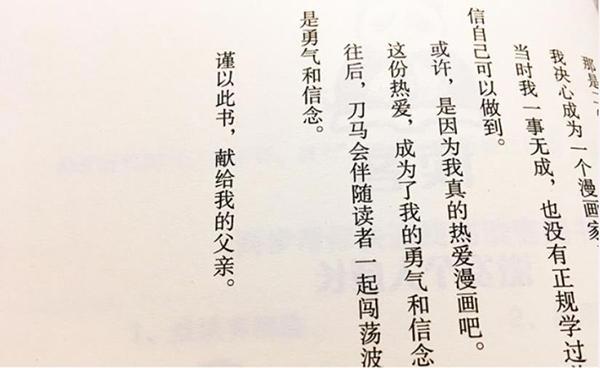 那是二
我决心成为一个漫画家
当时我一事无成，也没有正规学过
信自己可以做到。
或许，是因为我真的热爱漫画吧。
这份热爱，成为了我的勇气和信念
往后，刀马会伴随读者一起闯荡波
是勇气和信念。
谨以此书，献给我的父亲。